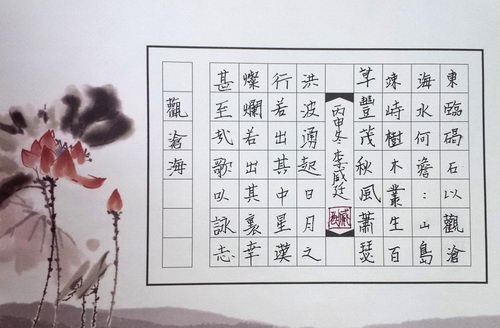 東臨碣石以觀滄
海水何澹:山島
竦峙樹木叢生百
草豐茂秋風蕭瑟
丙申冬 李威廷
洪波湧起日月之
行若出其中星漢
燦爛若出其裏幸
甚至哉歌以詠志
觀滄海